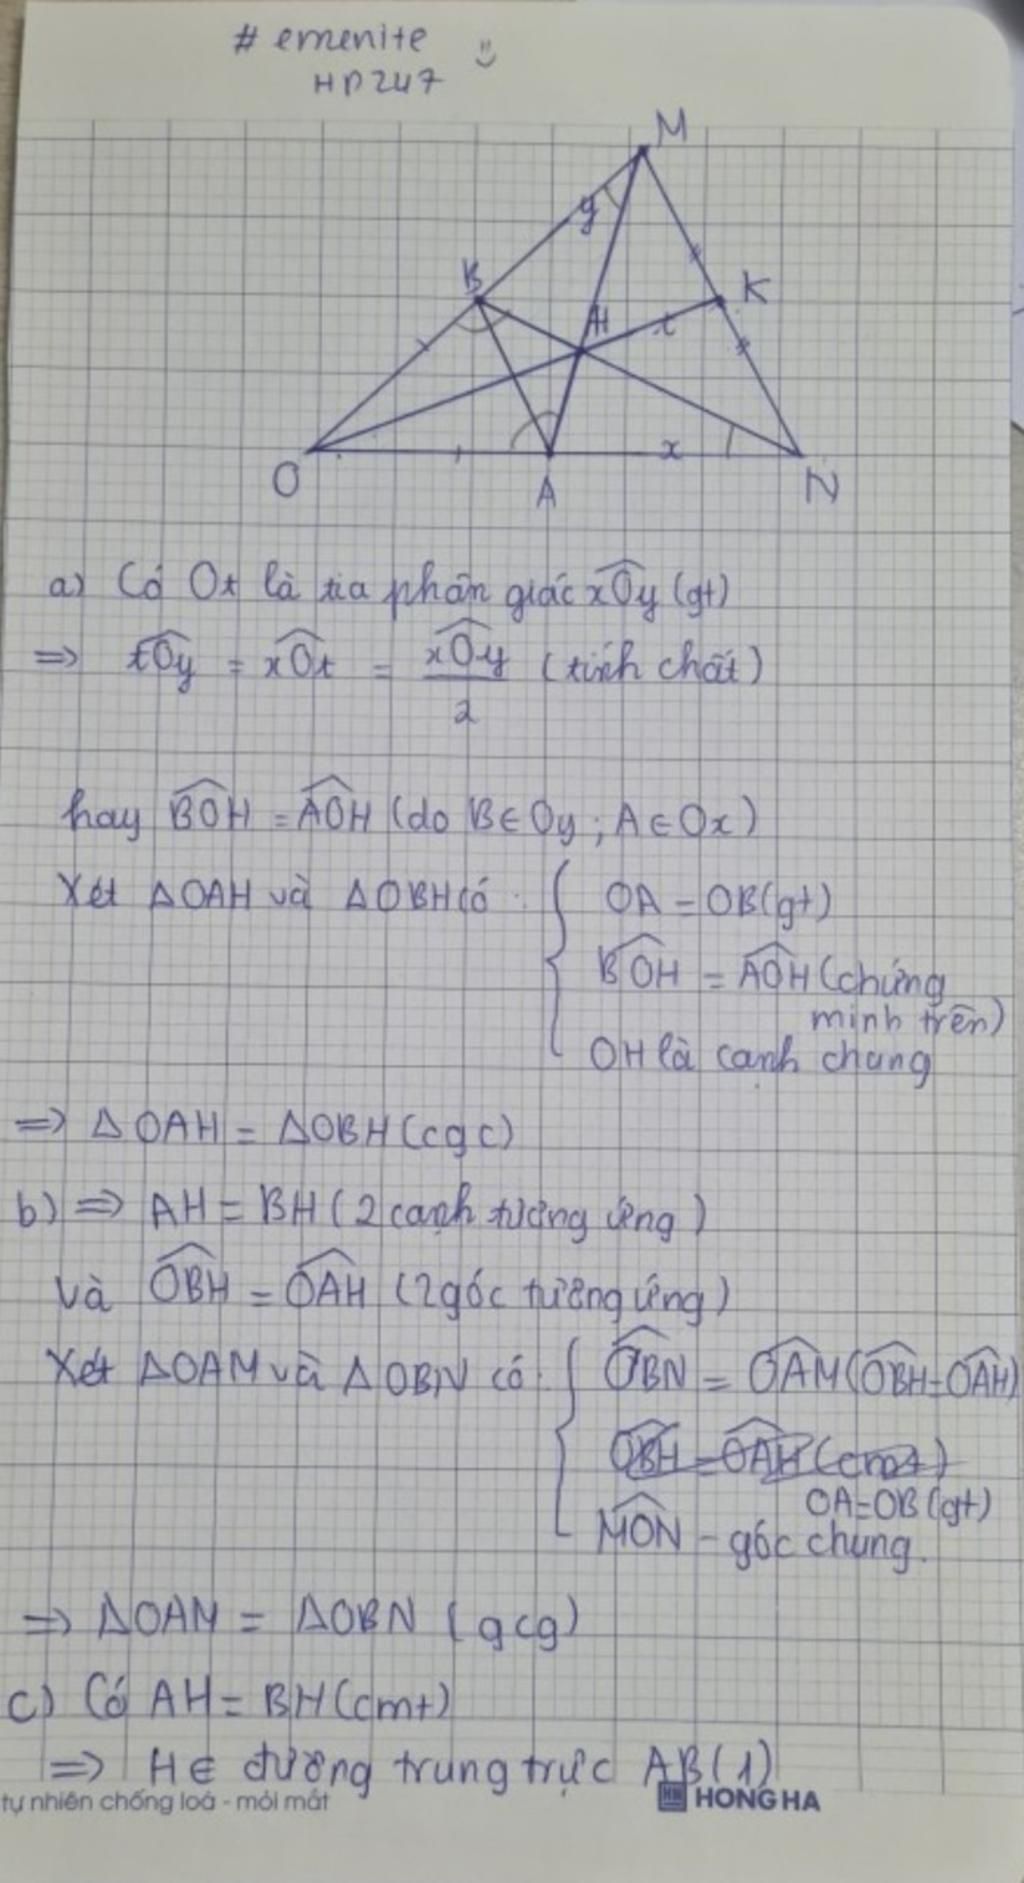 # emenite
HP247
M
y
B
K
H
t
O
A
x
N
a) Có Ot là tia phân giác xOy (gt)
⇒ tOy = xOt = xOy / 2 (tính chất)
hay BOH = AOH (do B∈Oy ; A∈Ox)
Xét ΔOAH và ΔOBH có: OA = OB (gt)
BOH = AOH (chứng
minh trên)
OH là cạnh chung
⇒ ΔOAH = ΔOBH (cgc)
b) ⇒ AH = BH (2 cạnh tương ứng)
và OBH = OAH (2 góc tương ứng)
Xét ΔOAM và ΔOBN có: OBN = OAM (OBH = OAH)
OBH = OAH (cmt)
OA=OB (gt)
MON - góc chung.
⇒ ΔOAM = ΔOBN (gcg)
c) Có AH = BH (cmt)
⇒ H∈ đường trung trực AB (1)
tự nhiên chống loá - mỏi mắt HONG HA